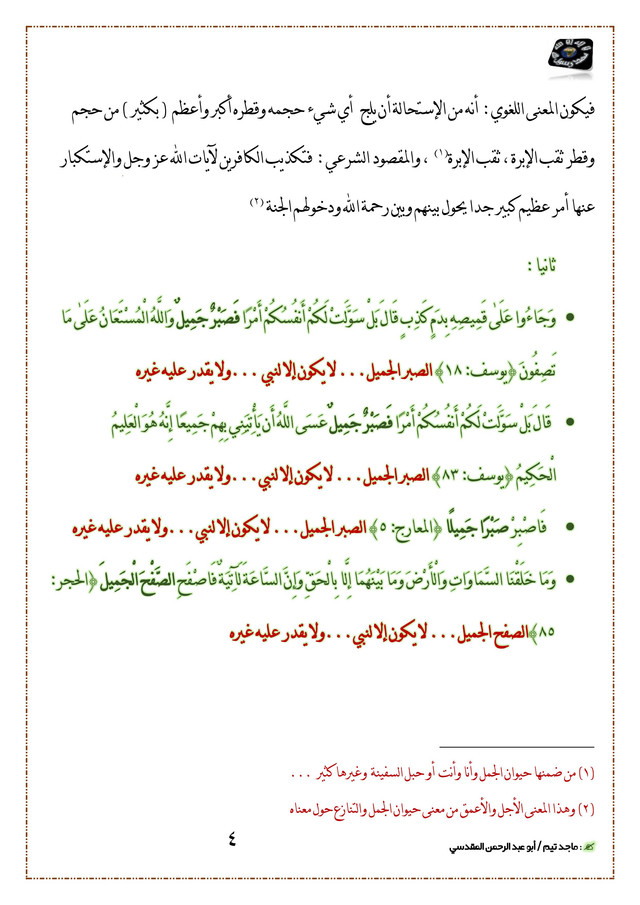 فيكون المعنى اللغوي : أنه من الإستحالة أن يلج أي شيء حجمه وقطره أكبر وأعظم ( بكثير ) من حجم
وقطر ثقب الإبرة ، ثقب الإبرة(١) ، والمقصود الشرعي : فتكذيب الكافرين لآيات الله عز وجل والإستكبار
عنها أمر عظيم كبير جدا يحول بينهم وبين رحمة الله ودخولهم الجنة (٢)
ثانيا :
• وَجَاءُوا عَلَىٰ قَمِيصِهِ بِدَمٍ كَذِبٍ قَالَ بَلْ سَوَّلَتْ لَكُمْ أَنفُسُكُمْ أَمْرًا فَصَبْرٌ جَمِيلٌ وَاللَّهُ الْمُسْتَعَانُ عَلَىٰ مَا
تَصِفُونَ ﴿يوسف: ١٨﴾ الصبر الجميل ... لا يكون إلا لنبي ... ولا يقدر عليه غيره
• قَالَ بَلْ سَوَّلَتْ لَكُمْ أَنفُسُكُمْ أَمْرًا فَصَبْرٌ جَمِيلٌ عَسَى اللَّهُ أَن يَأْتِيَنِي بِهِمْ جَمِيعًا إِنَّهُ هُوَ الْعَلِيمُ
الْحَكِيمُ ﴿يوسف: ٨٣﴾ الصبر الجميل ... لا يكون إلا لنبي ... ولا يقدر عليه غيره
• فَاصْبِرْ صَبْرًا جَمِيلًا ﴿المعارج: ٥﴾ الصبر الجميل ... لا يكون إلا لنبي ... ولا يقدر عليه غيره
• وَمَا خَلَقْنَا السَّمَاوَاتِ وَالْأَرْضَ وَمَا بَيْنَهُمَا إِلَّا بِالْحَقِّ وَإِنَّ السَّاعَةَ لَآتِيَةٌ فَاصْفَحِ الصَّفْحَ الْجَمِيلَ ﴿الحجر:
٨٥﴾ الصفح الجميل ... لا يكون إلا لنبي ... ولا يقدر عليه غيره
(١) من ضمنها حيوان الجمل وأنا وأنت أو حبل السفينة وغيرها كثير ...
(٢) وهذا المعنى الأجل والأعمق من معنى حيوان الجمل والتنازع حول معناه
: ماجد تيم / أبو عبد الرحمن المقدسي
٤